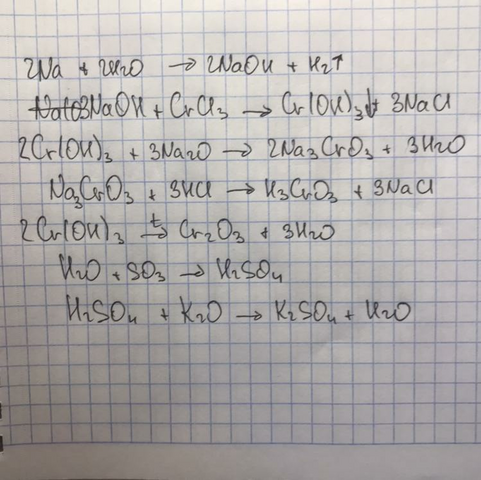 2Na + 2H2O → 2NaOH + H2↑
3NaOH + CrCl3 → Cr(OH)3↓ + 3NaCl
2Cr(OH)3 + 3Na2O → 2Na3CrO3 + 3H2O
Na3CrO3 + 3HCl → H3CrO3 + 3NaCl
2Cr(OH)3 t→ Cr2O3 + 3H2O
H2O + SO3 → H2SO4
H2SO4 + K2O → K2SO4 + H2O